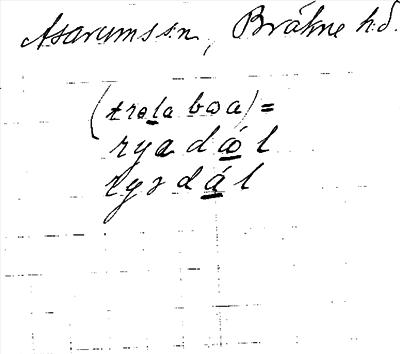 Asarums sn, Bräkne hd.
(trola boa) =
rya dål
rys dål